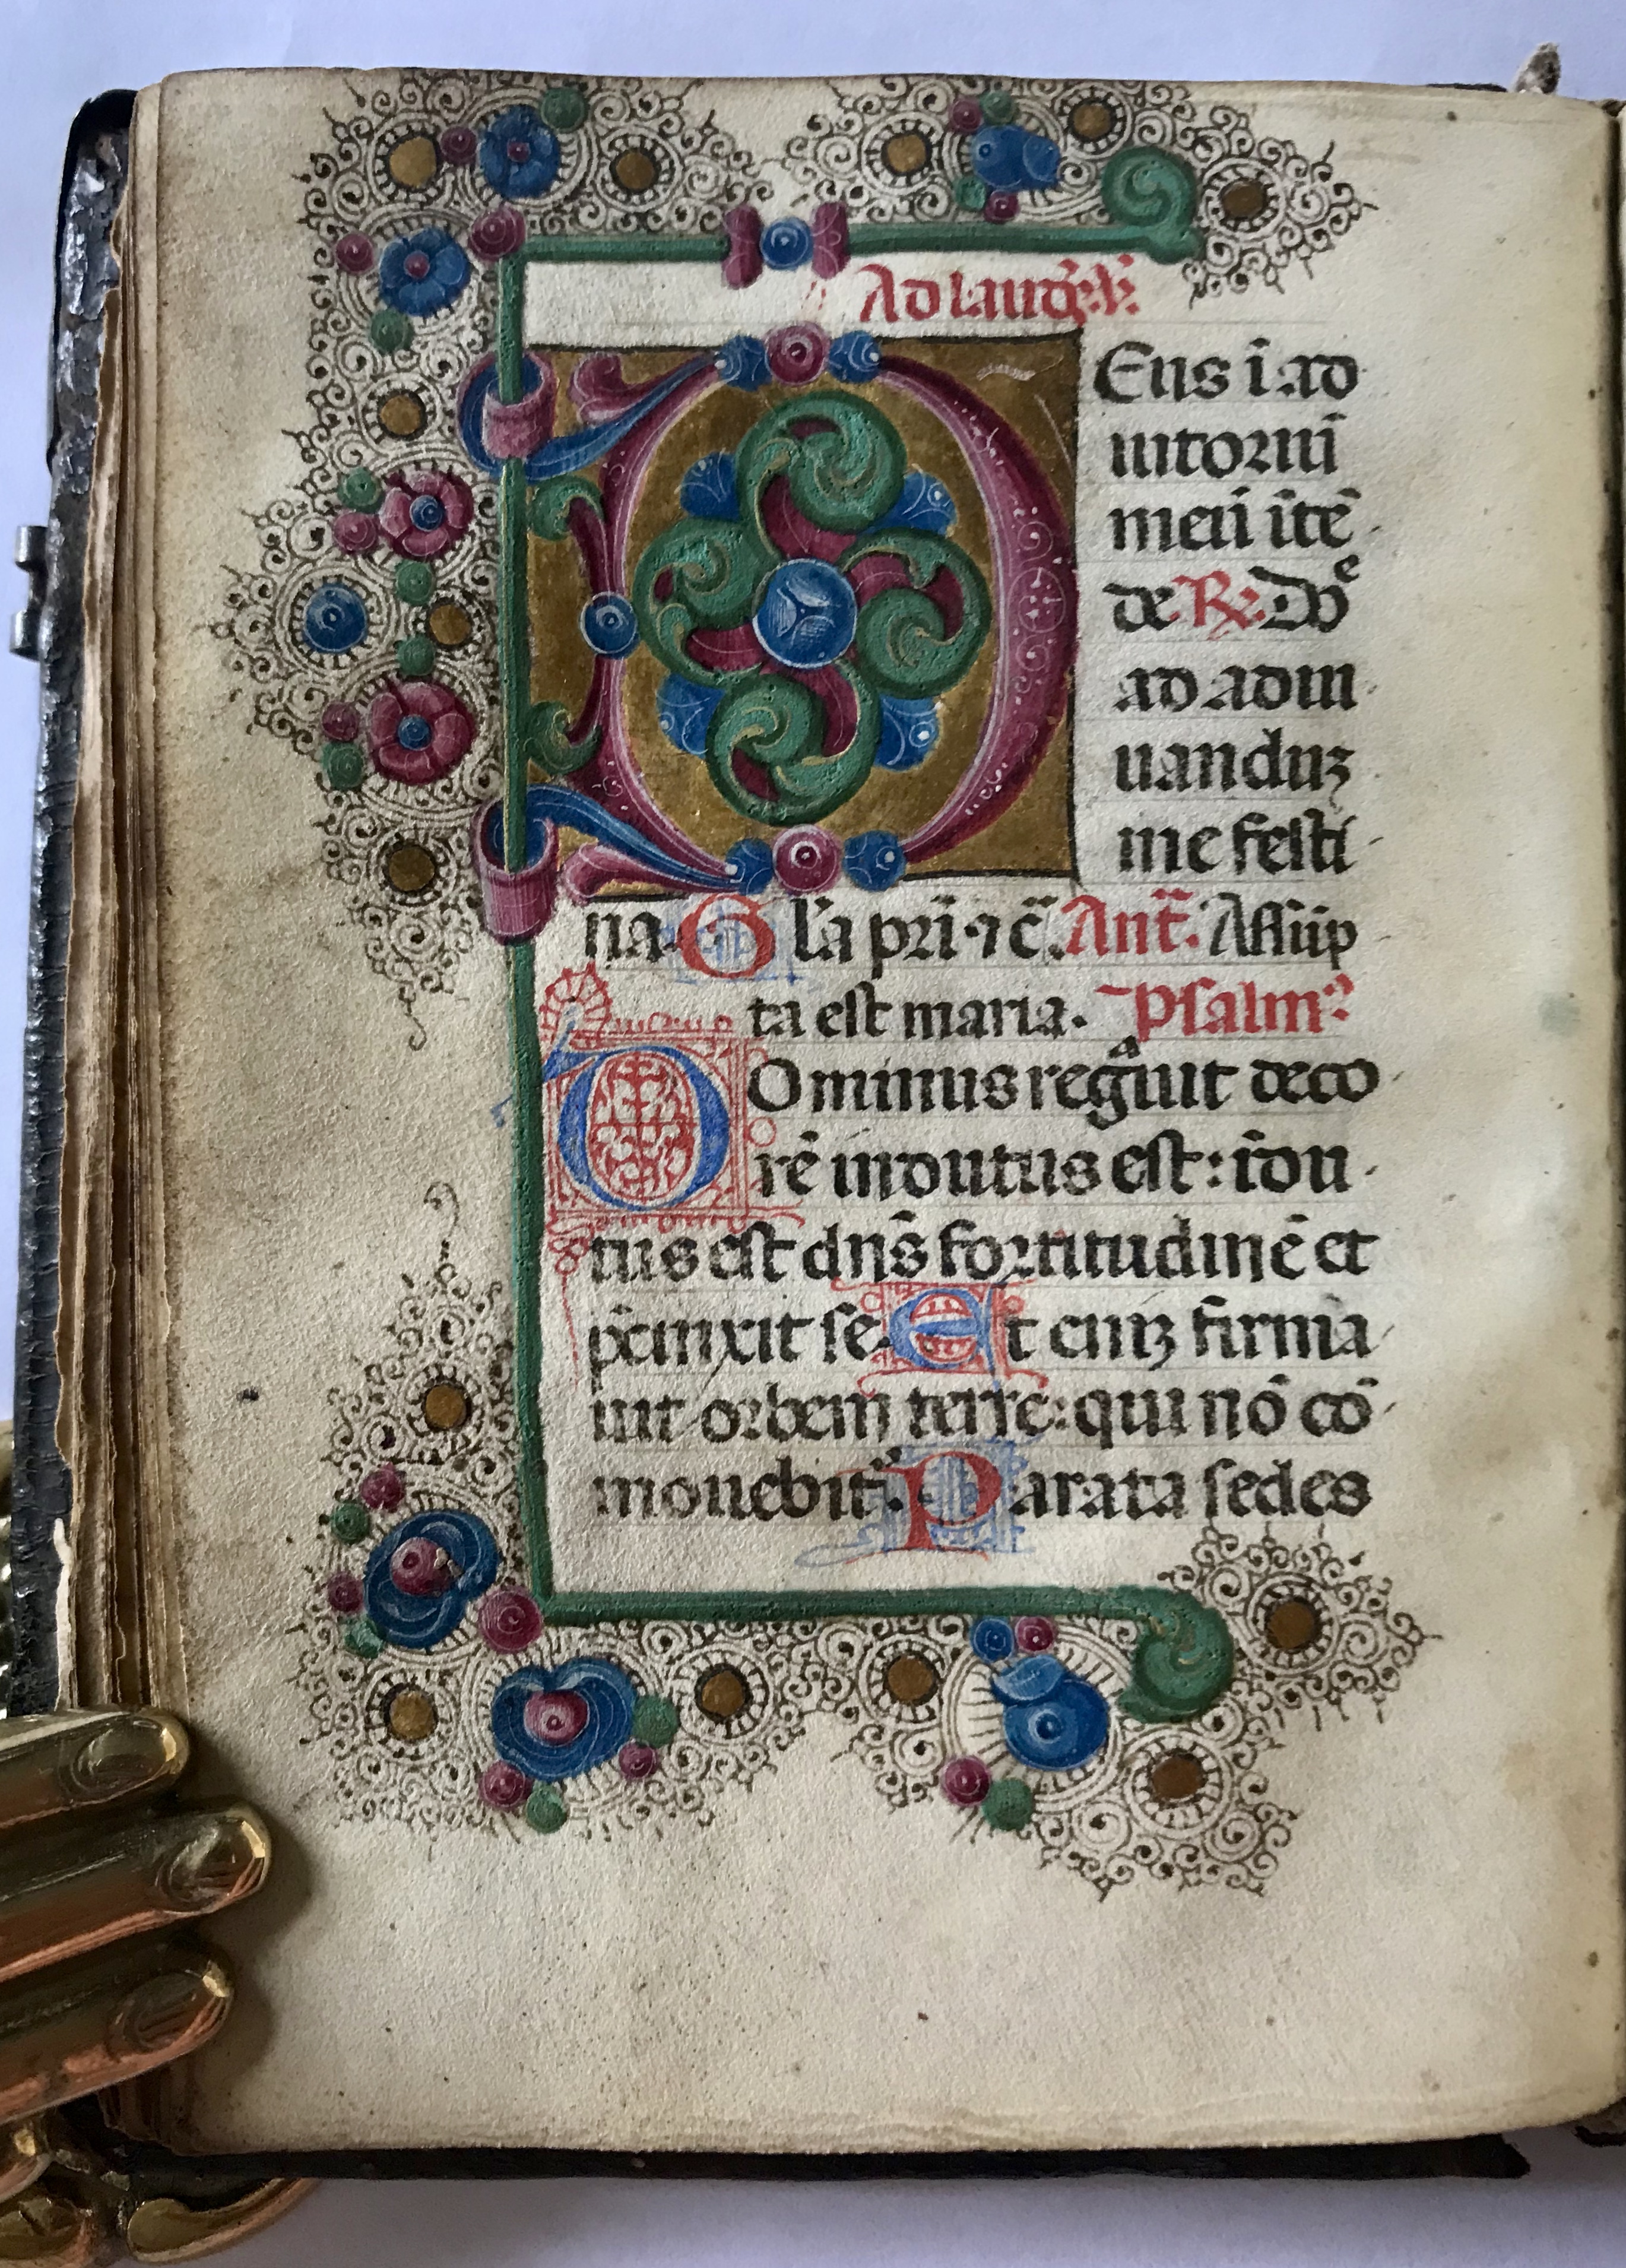 Ad laud. ꝟ.
DEus ī ad
iutoriū
meū ītē
de ℞. Dō͛
ad adiu
uanduꝫ
me festi
na. Gl'a pr̄i ⁊ c̄. Ant̄. Assūp
ta est maria. Psalmꝰ
DOminus regᵃuit deco
rē indutus est: īdu
tus est dn̄s fortitudinē et
p̄cinxit se. Et enīꝫ firma
uit orbem terre: qui nō cō
mouebit᷑. Parata sedes